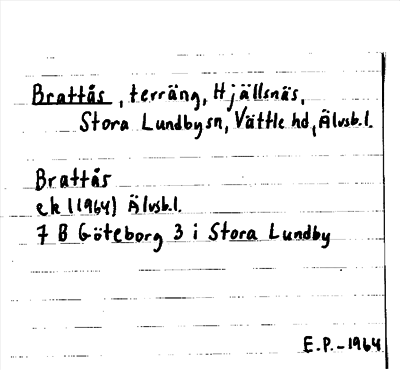 Brattås, terräng, Hjällsnäs,
Stora Lundbysn, Vättle hd, Älvsb.l.
Brattås
ek l (1964) Älvsb.l.
7 B Göteborg 3 i Stora Lundby
E.P.-1964